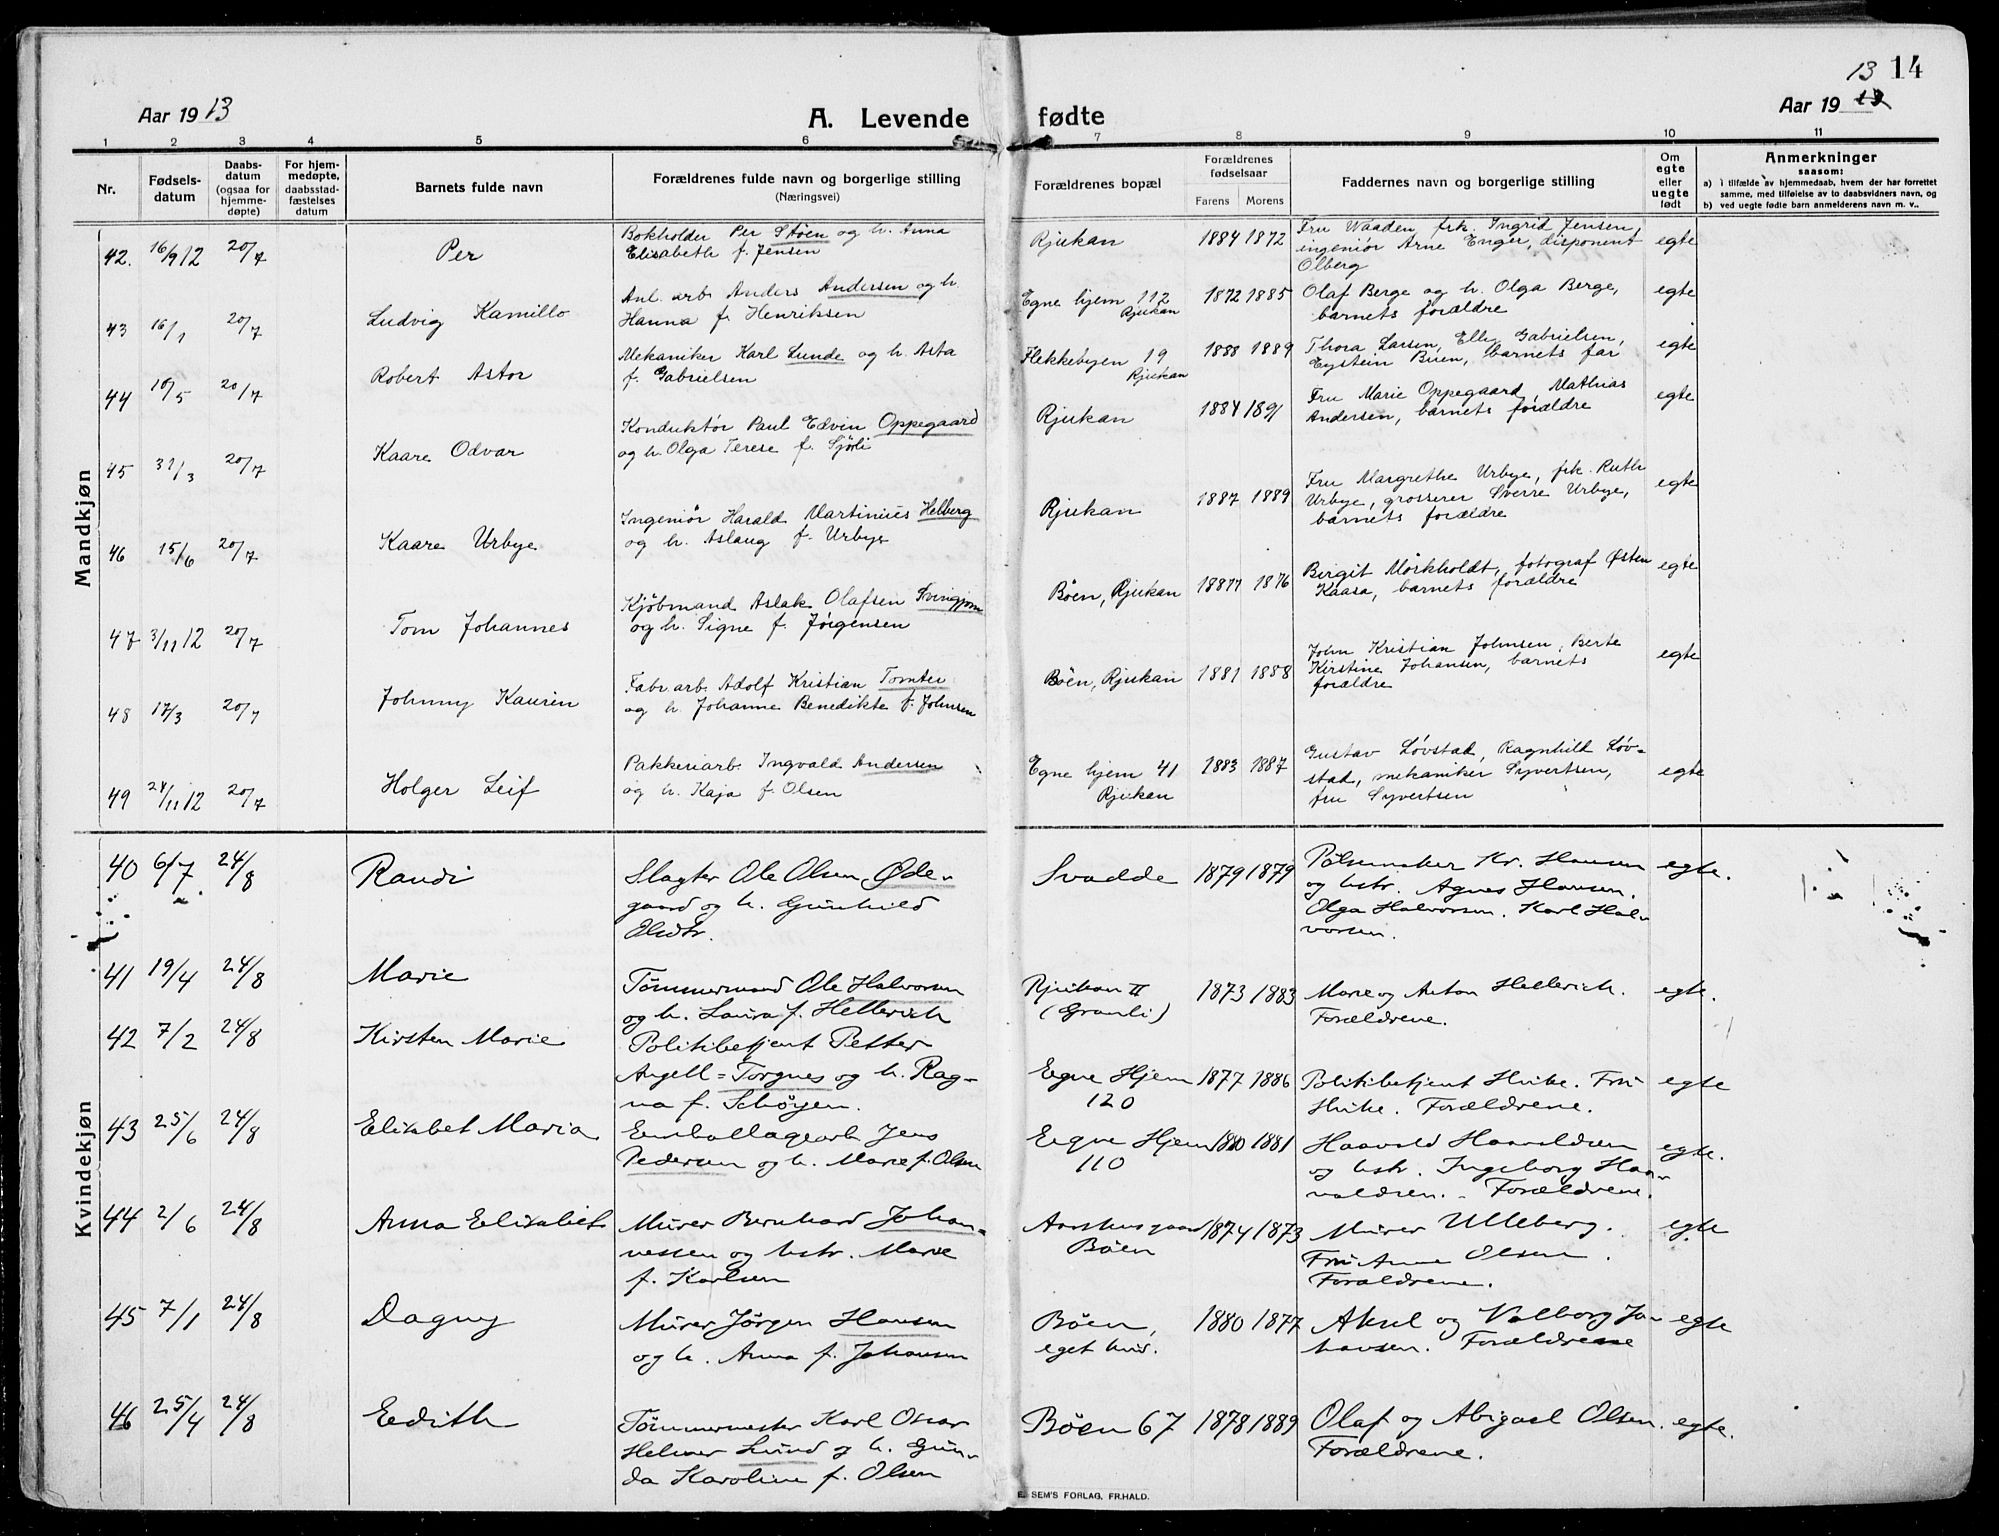 13 14
Aar 19 13
A. Levende
fødte
Aar 19
1 2 3 4 5 6
7 8 9 10 11
Nr.
Fødsels-
datum
Daabs-
datum
(ogsaa for
hjemme-
døpte)
For hjem-
medøpte,
daabsstad-
fæstelses
datum
Barnets fulde navn
Forældrenes fulde navn og borgerlige stilling
(Næringsvei)
Forældrenes bopæl
Forældrenes
fødselsaar
Farens Morens
Faddernes navn og borgerlige stilling
Om
egte
eller
uegte
født
Anmerkninger
saasom:
a) i tilfælde av hjemmedaab, hvem der har forrettet
samme, med tilføielse av to daabsvidners navn, og
b) ved uegte fødte barn anmelderens navn m. v..
Mandkjøn
42. 16/9 12 20/7 Per
Bokholder Per Støen og h. Anna
Elisabeth f. Jensen
Rjukan 1884 1872
Fru Waaden frk. Ingrid Jensen,
ingeniør Arne Enger, disponent
Olberg
egte
43 16/1 20/7 Ludvig Kamillo
Anl. arb. Anders Andersen og h.
Hanna f. Henriksen
Egne hjem 112
Rjukan
1872 1885
Olaf Berge og h. Olga Berge,
barnets forældre
egte
44 10/5 20/7 Robert Astor
Mekaniker Karl Lunde og h. Asta
f. Gabrielsen
Flekkebyen 19
Rjukan
1888 1889
Thora Larsen, Elle Gabrielsen,
Eystein Buen, barnets far
egte
45 31/3 20/7 Kaare Odvar
Konduktør Paul Edvin Oppegaard
og h. Olga Terese f. Sjøli
Rjukan 1884 1891
Fru Marie Oppegaard, Mathias
Andersen, barnets forældre
egte
46 15/6 20/7 Kaare Urbye
Ingeniør Harald Martinius Helberg
og h. Aslaug f. Urbye
Rjukan 1887 1889
Fru Margrethe Urbye, frk. Ruth
Urbye, grosserer Sverre Urbye,
barnets forældre
egte
47 3/11 12 20/7 Tom Johannes
Kjøbmand Aslak Olafsen
og h. Signe f. Jørgensen
Bøen, Rjukan 1876
Birgit Mørkholdt, fotograf Østen
Kaasa, barnets forældre
egte
48 17/3 20/7 Johnny Kaurin
Fabr. arb. Adolf Kristian Tomter
og h. Johanne Benedikte f. Johnsen
Bøen, Rjukan 1881 1888
John Kristian Johnsen, Berte
Kirstine Johansen, barnets
forældre
egte
49 24/11 12 20/7 Holger Leif
Pakkeriarb. Ingvald Andersen
og h. Kaja f. Olsen
Egne hjem 41
Rjukan
1883 1887
Gustav Løvstad, Ragnhild Løv-
stad, mekaniker Syvertsen,
fru Syvertsen
egte
Kvindekjøn
40 6/7. 24/8 Randi
Slagter Ole Olsen Øde-
gaard og h. Gunhild
Olsdtr.
Svadde 1879 1879
Pølsemaker Kr. Hansen
og hstr. Agnes Hansen.
Olga Halvorsen. Karl Hal-
vorsen.
egte.
41 19/4 24/8 Marie
Tømmermand Ole Halvorsen
og h. Laura f. Hellerich
Rjukan II
(Granli)
1873 1883
Marie og Anton Hellerich.
Forældrene.
egte.
42 7/2 24/8 Kirsten Marie
Politibetjent Petter
Angell=Torgnes og h. Rag-
na f. Schøyen.
Egne Hjem
120
1877 1886
Politibetjent Hvibe. Fru
Hvibe. Forældrene.
egte
43 25/6 24/8 Elisabet Maria
Emballagearb. Jens
Pedersen og h. Marie f. Olsen
Eegne Hjem
110
1880 1881
Haavald Haavaldsen
og hstr. Ingeborg Haa-
valdsen. Forældrene.
egte.
44 2/6 24/8 Anna Elisabet
Murer Bernhard Johan-
nessen og hstr. Marie
f. Karlsen
Aarshusgaard
Bøen
1874 1873
Murer Ulleberg.
Fru Anna Olsen.
Forældrene.
egte
45 7/1 24/8 Dagny
Murer Jørgen Hansen
og h. Anna f. Johansen
Bøen,
eget hus.
1880 1877
Aksel og Valborg Jo-
hansen. Forældrene
egte
46 25/4 24/8 Edith
Tømmermester Karl Oscar
Helmer Lund og h. Gun-
da Karoline f. Olsen
Bøen 67 1878 1889
Olaf og Abigael Olsen.
Forældrene.
egte.
E. SEM'S FORLAG, FR.HALD.